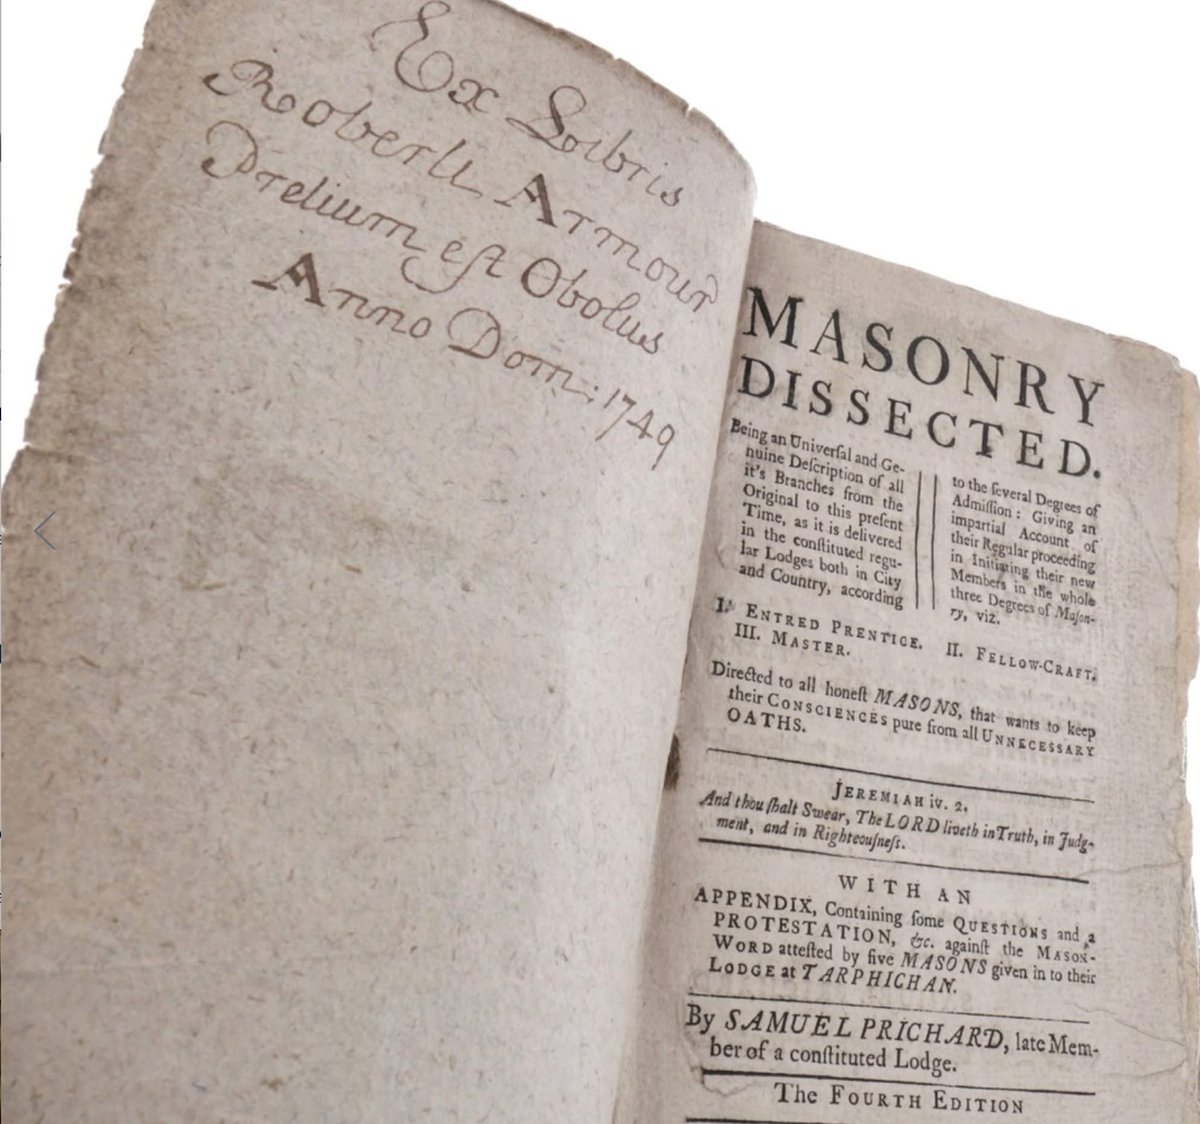 Ex Libris
Roberti Armour
Pretium est Obolus
Anno Dom: 1749
MASONRY
DISSECTED.
Being an Univerſal and Ge-
nuine Deſcription of all
it's Branches from the
Original to this preſent
Time, as it is delivered
in the conſtituted regu-
lar Lodges both in City
and Country, according
to the ſeveral Degrees of
Admiſſion: Giving an
impartial Account of
their Regular proceeding
in Initiating their new
Members in the whole
three Degrees of Maſon-
ry, viz.
I. ENTRED PRENTICE. II. FELLOW-CRAFT.
III. MASTER.
Directed to all honeſt MASONS, that wants to keep
their CONSCIENCES pure from all UNNECESSARY
OATHS.
JEREMIAH iv. 2.
And thou ſhalt Swear, The LORD liveth in Truth, in Judg-
ment, and in Righteouſneſs.
WITH AN
APPENDIX, Containing ſome QUESTIONS and a
PROTESTATION, &c. againſt the MASON-
WORD atteſted by five MASONS given in to their
LODGE at TARPHICHAN.
By SAMUEL PRICHARD, late Mem-
ber of a conſtituted Lodge.
The FOURTH EDITION